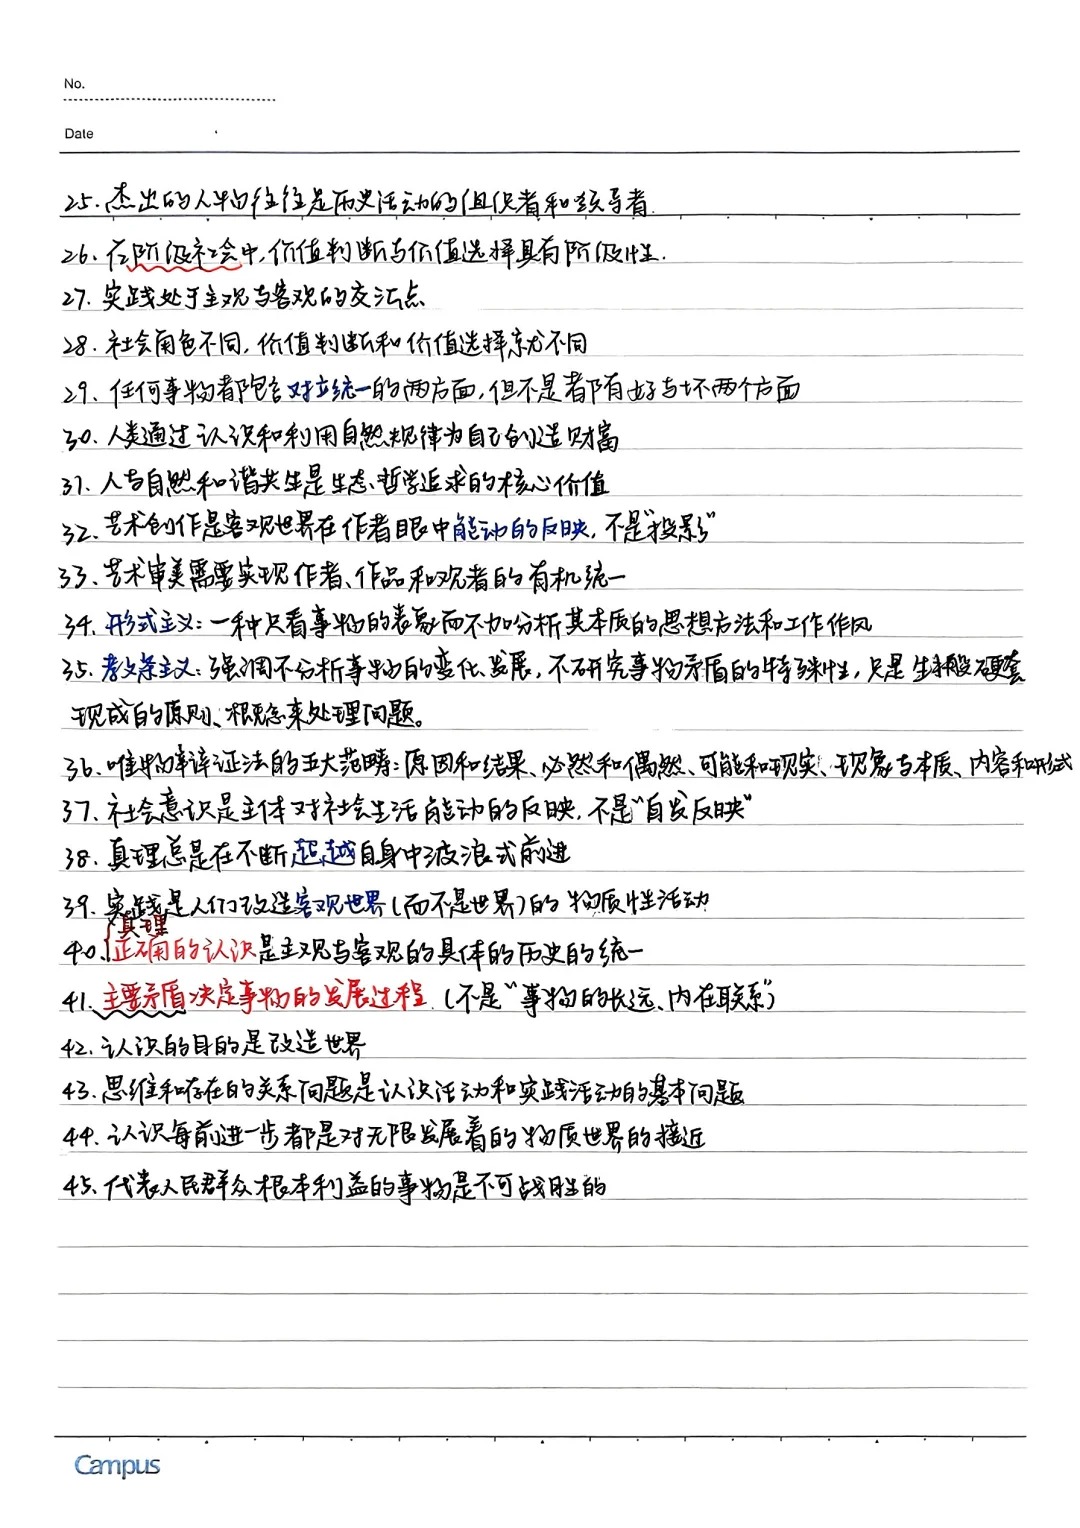 No.
Date
25. 杰出的人物往往是历史活动的促者和领导者.
26. 在阶级社会中,价值判断与价值选择具有阶级性.
27. 实践处于主观与客观的交汇点
28. 社会角色不同,价值判断和价值选择就不同
29. 任何事物都包含对立统一的两方面,但不是都有好与坏两个方面
30. 人类通过认识和利用自然规律为自己创造财富
31. 人与自然和谐共生是生态哲学追求的核心价值
32. 艺术创作是客观世界在作者眼中能动的反映,不是"投影"
33. 艺术审美需要实现作者、作品和观者的有机统一
34. 形式主义:一种只看事物的表象而不加分析其本质的思想方法和工作作风
35. 教条主义:强调不分析事物的变化、发展,不研究事物矛盾的特殊性,只是生搬硬套
现成的原则、概念来处理问题。
36. 唯物辩证法的五大范畴:原因和结果、必然和偶然、可能和现实、现象与本质、内容和形式
37. 社会意识是主体对社会生活能动的反映,不是"自发反映"
38. 真理总是在不断超越自身中波浪式前进
39. 实践是人们改造客观世界(而不是世界)的物质性活动
真理
40. 正确的认识是主观与客观的具体的历史的统一
41. 主要矛盾决定事物的发展过程.(不是"事物的长远、内在联系")
42. 认识的目的是改造世界
43. 思维和存在的关系问题是认识活动和实践活动的基本问题
44. 认识每前进一步都是对无限发展着的物质世界的接近
45. 代表人民群众根本利益的事物是不可战胜的
Campus